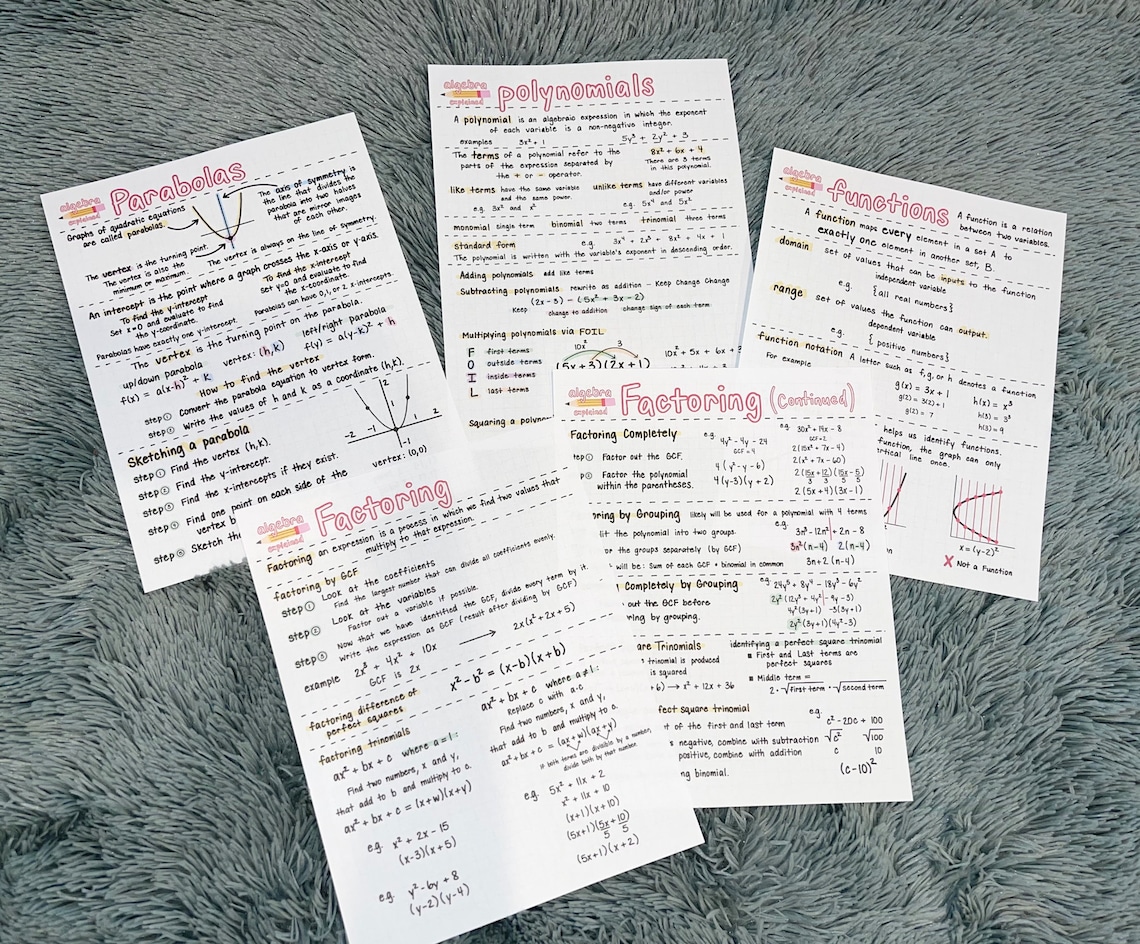 algebra
explained
Parabolas
Graphs of quadratic equations
are called parabolas.
The axis of symmetry is
the line that divides the
parabola into two halves
that are mirror images
of each other.
The vertex is the turning point.
The vertex is also the
minimum or maximum.
The vertex is always on the line of symmetry.
An intercept is the point where a graph crosses the x-axis or y-axis.
To find the y-intercept
Set x=0 and evaluate to find
the y-coordinate.
To find the x-intercept
set y=0 and evaluate to find
the x-coordinate.
Parabolas have exactly one y-intercept.
Parabolas can have 0,1, or 2 x-intercepts.
The vertex is the turning point on the parabola.
up/down parabola
vertex: (h,k)
left/right parabola
f(x) = a(x-h)² + k
f(y) = a(y-k)² + h
How to find the vertex
step ① Convert the parabola equation to vertex form.
step ② Write the values of h and k as a coordinate (h,k).
Sketching a parabola
step ① Find the vertex (h,k).
step ② Find the y-intercept.
step ③ Find the x-intercepts if they exist.
step ④ Find one point on each side of the
vertex b
step ⑤ Sketch th
2
-2 -1 1 2
-1
vertex: (0,0)
algebra
explained
polynomials
A polynomial is an algebraic expression in which the exponent
of each variable is a non-negative integer.
examples 3x² + 1 5y³ + 2y² + 3
The terms of a polynomial refer to the
parts of the expression separated by
the + or - operator.
8x² + 6x + 4
There are 3 terms
in this polynomial.
like terms have the same variable
and the same power.
e.g. 3x² and x²
unlike terms have different variables
and/or power
e.g. 5x⁴ and 5x²
monomial single term binomial two terms trinomial three terms
standard form e.g. 3x⁴ + 2x³ + 8x² + 4x + 1
The polynomial is written with the variable's exponent in descending order.
Adding polynomials add like terms
Subtracting polynomials rewrite as addition - Keep Change Change
(2x - 3) - (5x² + 3x - 2)
Keep change to addition change sign of each term
Multiplying polynomials via FOIL
F first terms
O outside terms
I inside terms
L last terms
10x² 3
(5x + 3)(2x + 1)
10x² + 5x + 6x + 3
Squaring a polynom
algebra
explained
functions
A function is a relation
between two variables.
A function maps every element in a set A to
exactly one element in another set, B.
domain
set of values that can be inputs to the function
independent variable
e.g. {all real numbers}
range
set of values the function can output.
dependent variable
e.g. { positive numbers}
function notation A letter such as f,g, or h denotes a function
For example
g(x) = 3x + 1
g(2) = 3(2)+1
g(2) = 7
h(x) = x³
h(3) = 3³
h(3) = 9
helps us identify functions.
function, the graph can only
ertical line once.
x = (y-2)²
X Not a Function
algebra
explained
Factoring
Factoring an expression is a process in which we find two values that
multiply to that expression.
factoring by GCF
step ① Look at the coefficients
Find the largest number that can divide all coefficients evenly.
step ② Look at the variables
Factor out a variable if possible.
step ③ Now that we have identified the GCF, divide every term by it.
Write the expression as GCF (result after dividing by GCF)
example 2x³ + 4x² + 10x → 2x(x² + 2x + 5)
GCF is 2x
factoring difference of
perfect squares
x² - b² = (x-b)(x+b)
factoring trinomials
ax² + bx + c where a = 1 :
Find two numbers, x and y,
that add to b and multiply to c.
ax² + bx + c = (x+w)(x+y)
e.g. x² + 2x - 15
(x-3)(x+5)
e.g. y² - 6y + 8
(y-2)(y-4)
ax² + bx + c where a ≠ 1 :
Replace c with a·c
Find two numbers, x and y,
that add to b and multiply to c.
ax² + bx + c = (ax+w)(ax+y)
If both terms are divisible by a number,
divide both by that number.
e.g. 5x² + 11x + 2
x² + 11x + 10
(x+1)(x+10)
(5x+1)(5x+10)
5 5
(5x+1)(x+2)
algebra
explained
Factoring (Continued)
Factoring Completely
tep ① Factor out the GCF.
ep ② Factor the polynomial
within the parentheses.
e.g. 4y² - 4y - 24
GCF = 4
4(y² - y - 6)
4(y-3)(y+2)
e.g. 30x² + 14x - 8
GCF = 2
2(15x² + 7x - 4)
2(x² + 7x - 60)
2(15x+12)(15x-5)
3 3 5 5
2(5x+4)(3x-1)
oring by Grouping likely will be used for a polynomial with 4 terms
lit the polynomial into two groups.
or the groups separately (by GCF)
will be: Sum of each GCF • binomial in common
e.g.
3n³ - 12n² + 2n - 8
3n²(n-4) 2(n-4)
3n+2 (n-4)
Completely by Grouping
out the GCF before
ring by grouping.
e.g. 24y⁵ + 8y⁴ - 18y³ - 6y²
2y²(12y³ + 4y² - 9y - 3)
4y²(3y+1) -3(3y+1)
2y²(3y+1)(4y²-3)
are Trinomials
trinomial is produced
is squared
+6) → x² + 12x + 36
identifying a perfect square trinomial
First and Last terms are
perfect squares
Middle term =
2·√first term · √second term
fect square trinomial
t of the first and last term
s negative, combine with subtraction
positive, combine with addition
ng binomial.
e.g.
c² - 20c + 100
√c² √100
c 10
(c-10)²